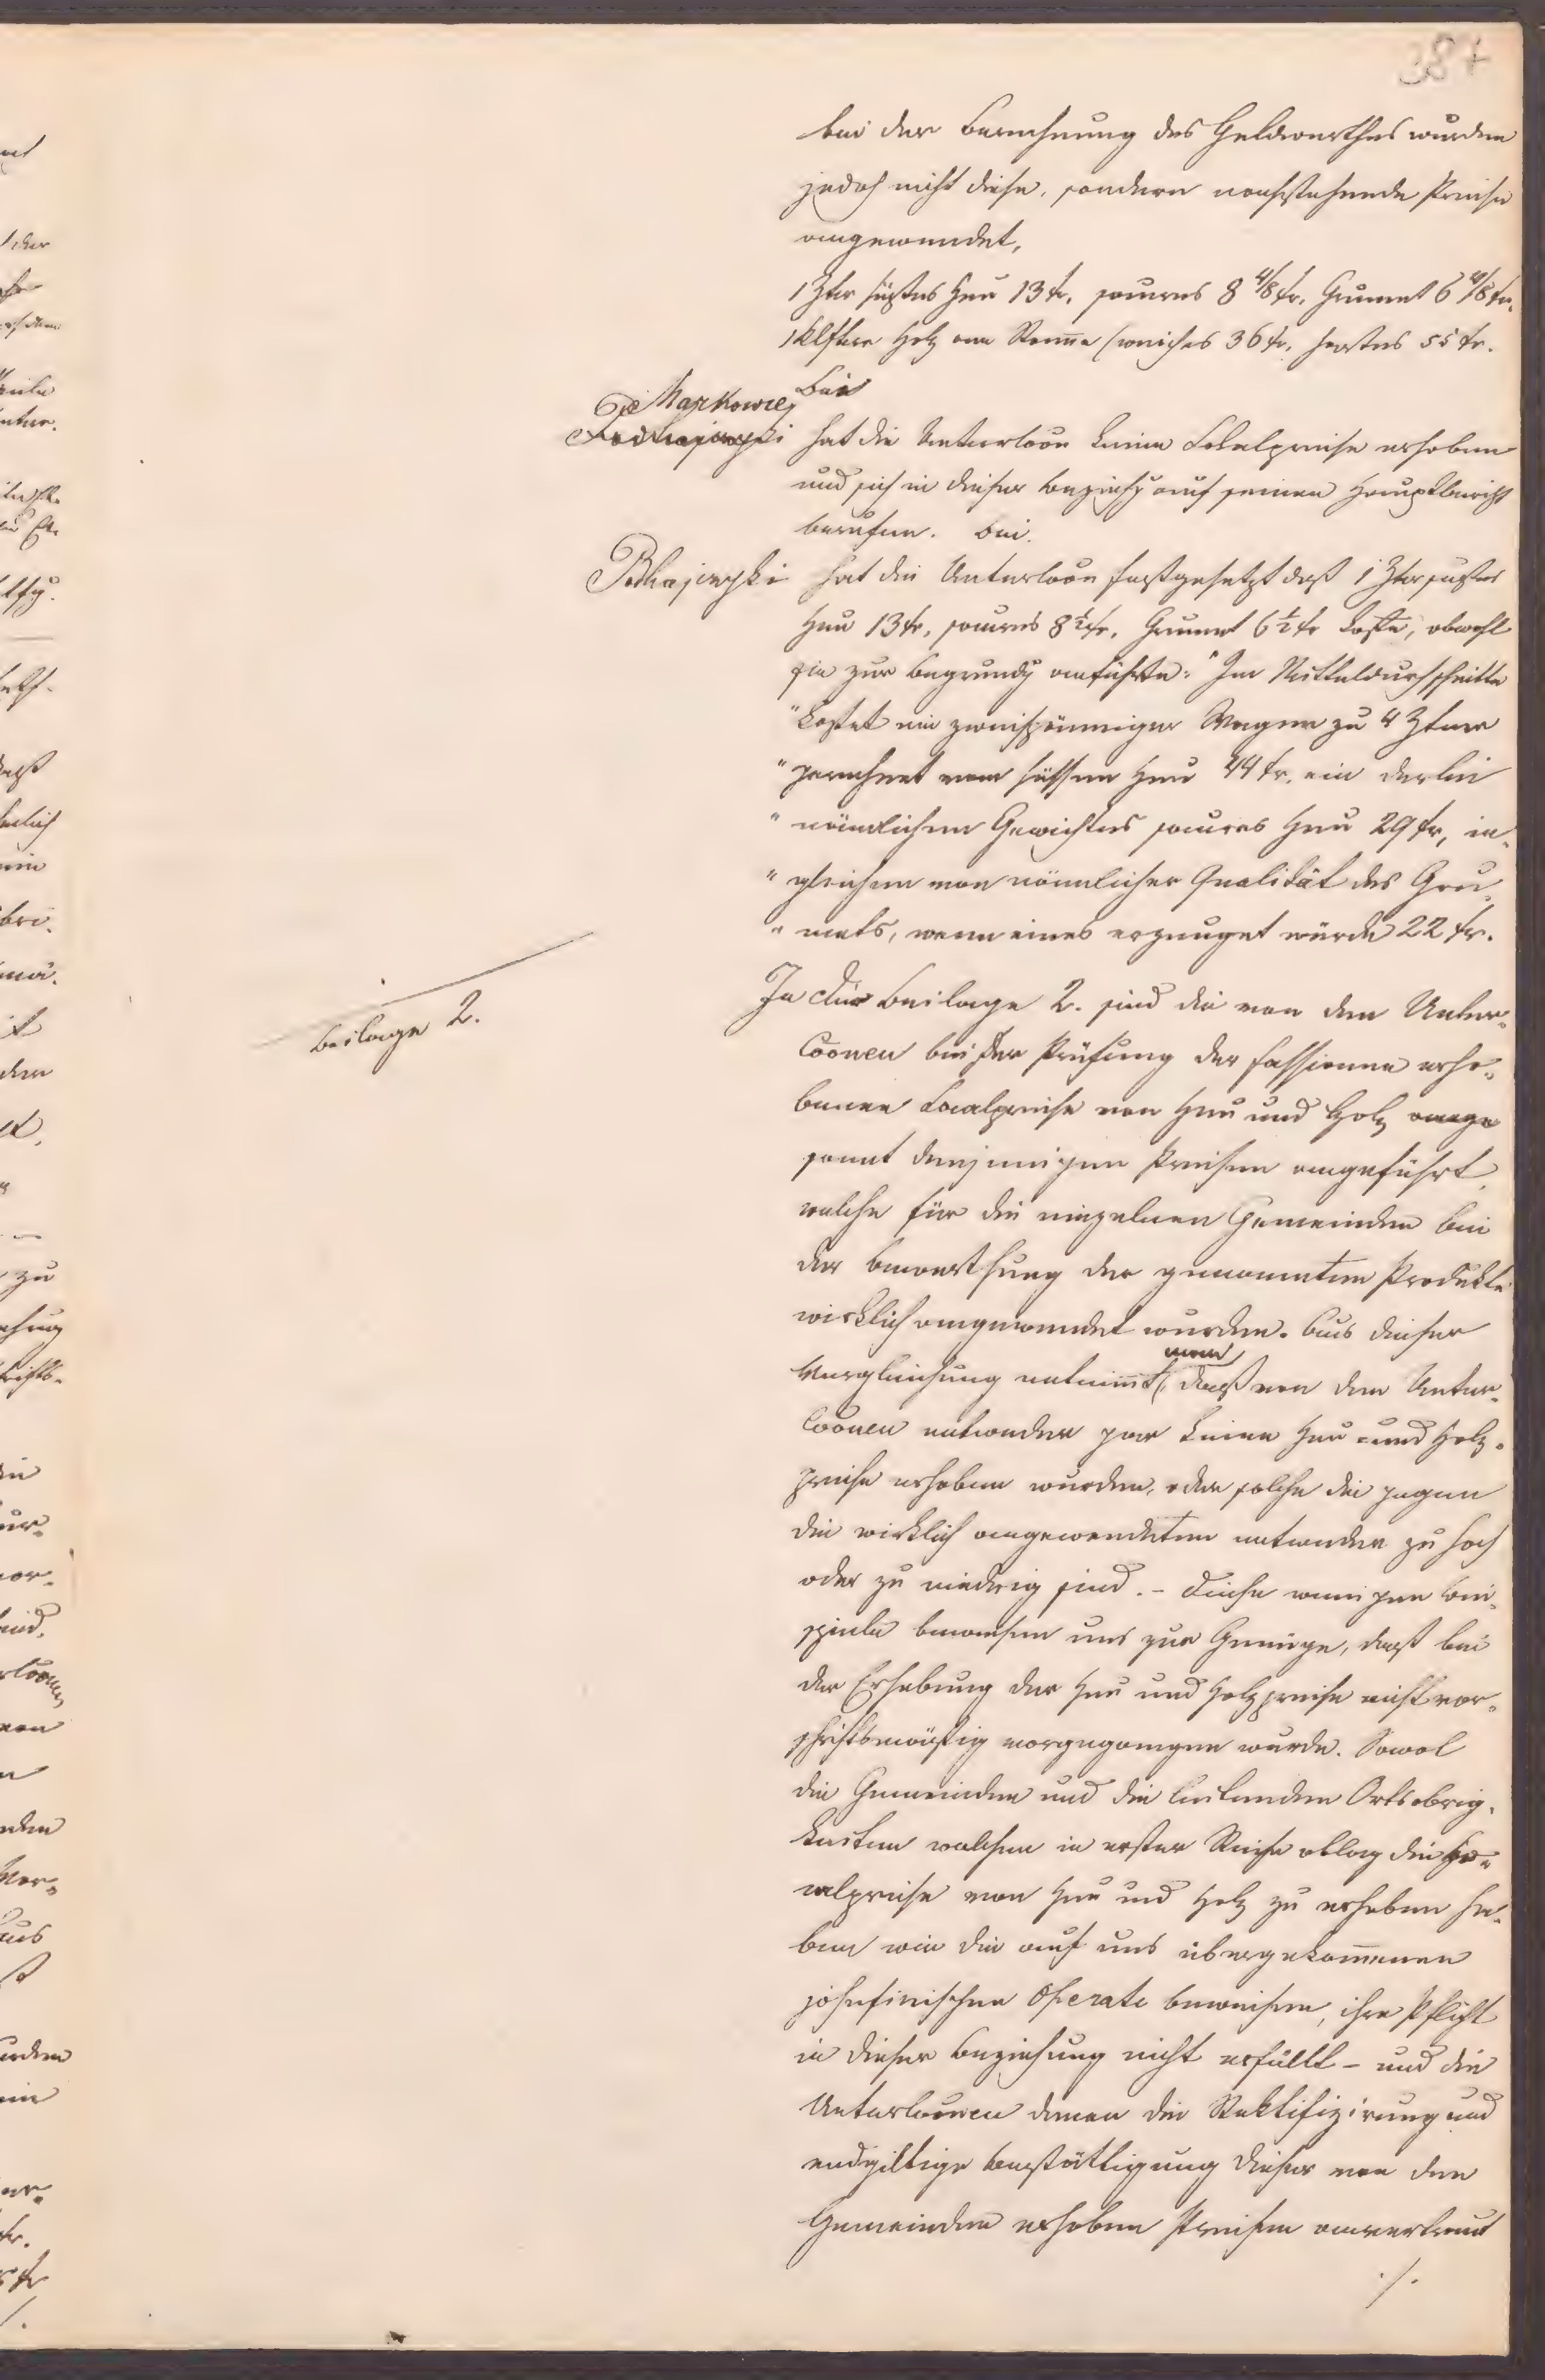 387
bei der Berechnung des Geldwerthes wurden
jedoch nicht diese, sondern nachstehende Preise
angewendet,
1 Ztr süßes Heu 13 kr. saures 8 4/8 kr. Grumet 6 4/8 kr.
1 Klftr Holz am Stamme weiches 36 kr. hartes 55 kr.
Bei
Markowce
Podhajczyki hat die Untercoon keine Lokalpreise erhoben
und sich in dieser Beziehg auf seinen Hauptbericht
berufen. Bei
Podhajczyki hat die Untercoon festgesetzt daß 1 Ztr süßes
Heu 13 kr, saures 8 1/2 kr. Grumet 6 1/2 kr koste, obwohl
sie zur Begründg anführte: "Im Mitteldurchschnitte
"kostet ein zweispänniger Wagen zu 4 Ztner
"gerechnet vom süssen Heu 44 kr. ein derlei
"nämlichen Gewichtes saures Heu 29 kr, in-
"gleichen von nämlicher Qualität des Gru-
"mets, wenn eines erzeuget würde 22 kr.
Beilage 2.
In der Beilage 2. sind die von den Unter-
coonen bei der Prüfung der Fassionen erho-
benen Localpreise von Heu und Holz
sammt denjenigen Preisen angeführt,
welche für die einzelnen Gemeinden bei
der Bewerthung der genannten Produkte
wirklich angewendet wurden. Aus dieser
Vergleichung entnimmt man, daß von den Unter-
coonen entweder gar keine Heu- und Holz-
preise erhoben wurden, oder solche die gegen
die wirklich angewendeten entweder zu hoch
oder zu niedrig sind. - Diese wenigen Bei-
spiele beweisen uns zur Genüge, daß bei
der Erhebung der Heu und Holzpreise nicht vor-
schriftsmäßig vorgegangen wurde. Sowol
die Gemeinden und die leitenden Ortsobrig-
keiten welchen in erster Reihe oblag die Lo-
calpreise von Heu und Holz zu erheben ha-
ben wie die auf uns übergekommenen
josefinischen Operate beweisen, ihre Pflicht
in dieser Beziehung nicht erfüllt - und die
Untercoonen denen die Rektifizirung und
endgiltige Bestättigung dieser von den
Gemeinden erhoben Preisen anvertraut
./.